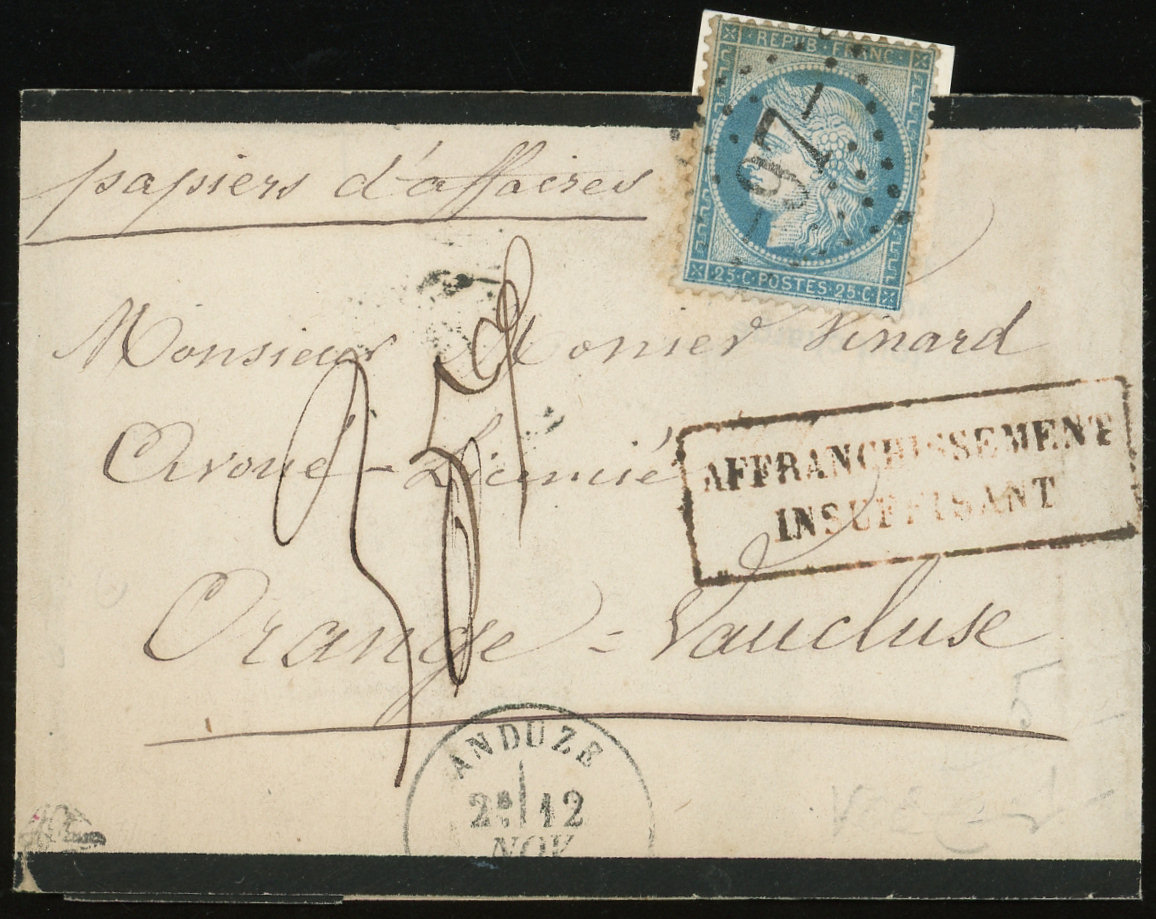 REPUB · FRANC ·
97
25 · C · POSTES · 25 · C ·
papiers d'affaires
Monsieur Monier Vinard
Avoué - Licencié
AFFRANCHISSEMENT
INSUFFISANT
Orange = Vaucluse
ANDUZE
2E 12
NOV